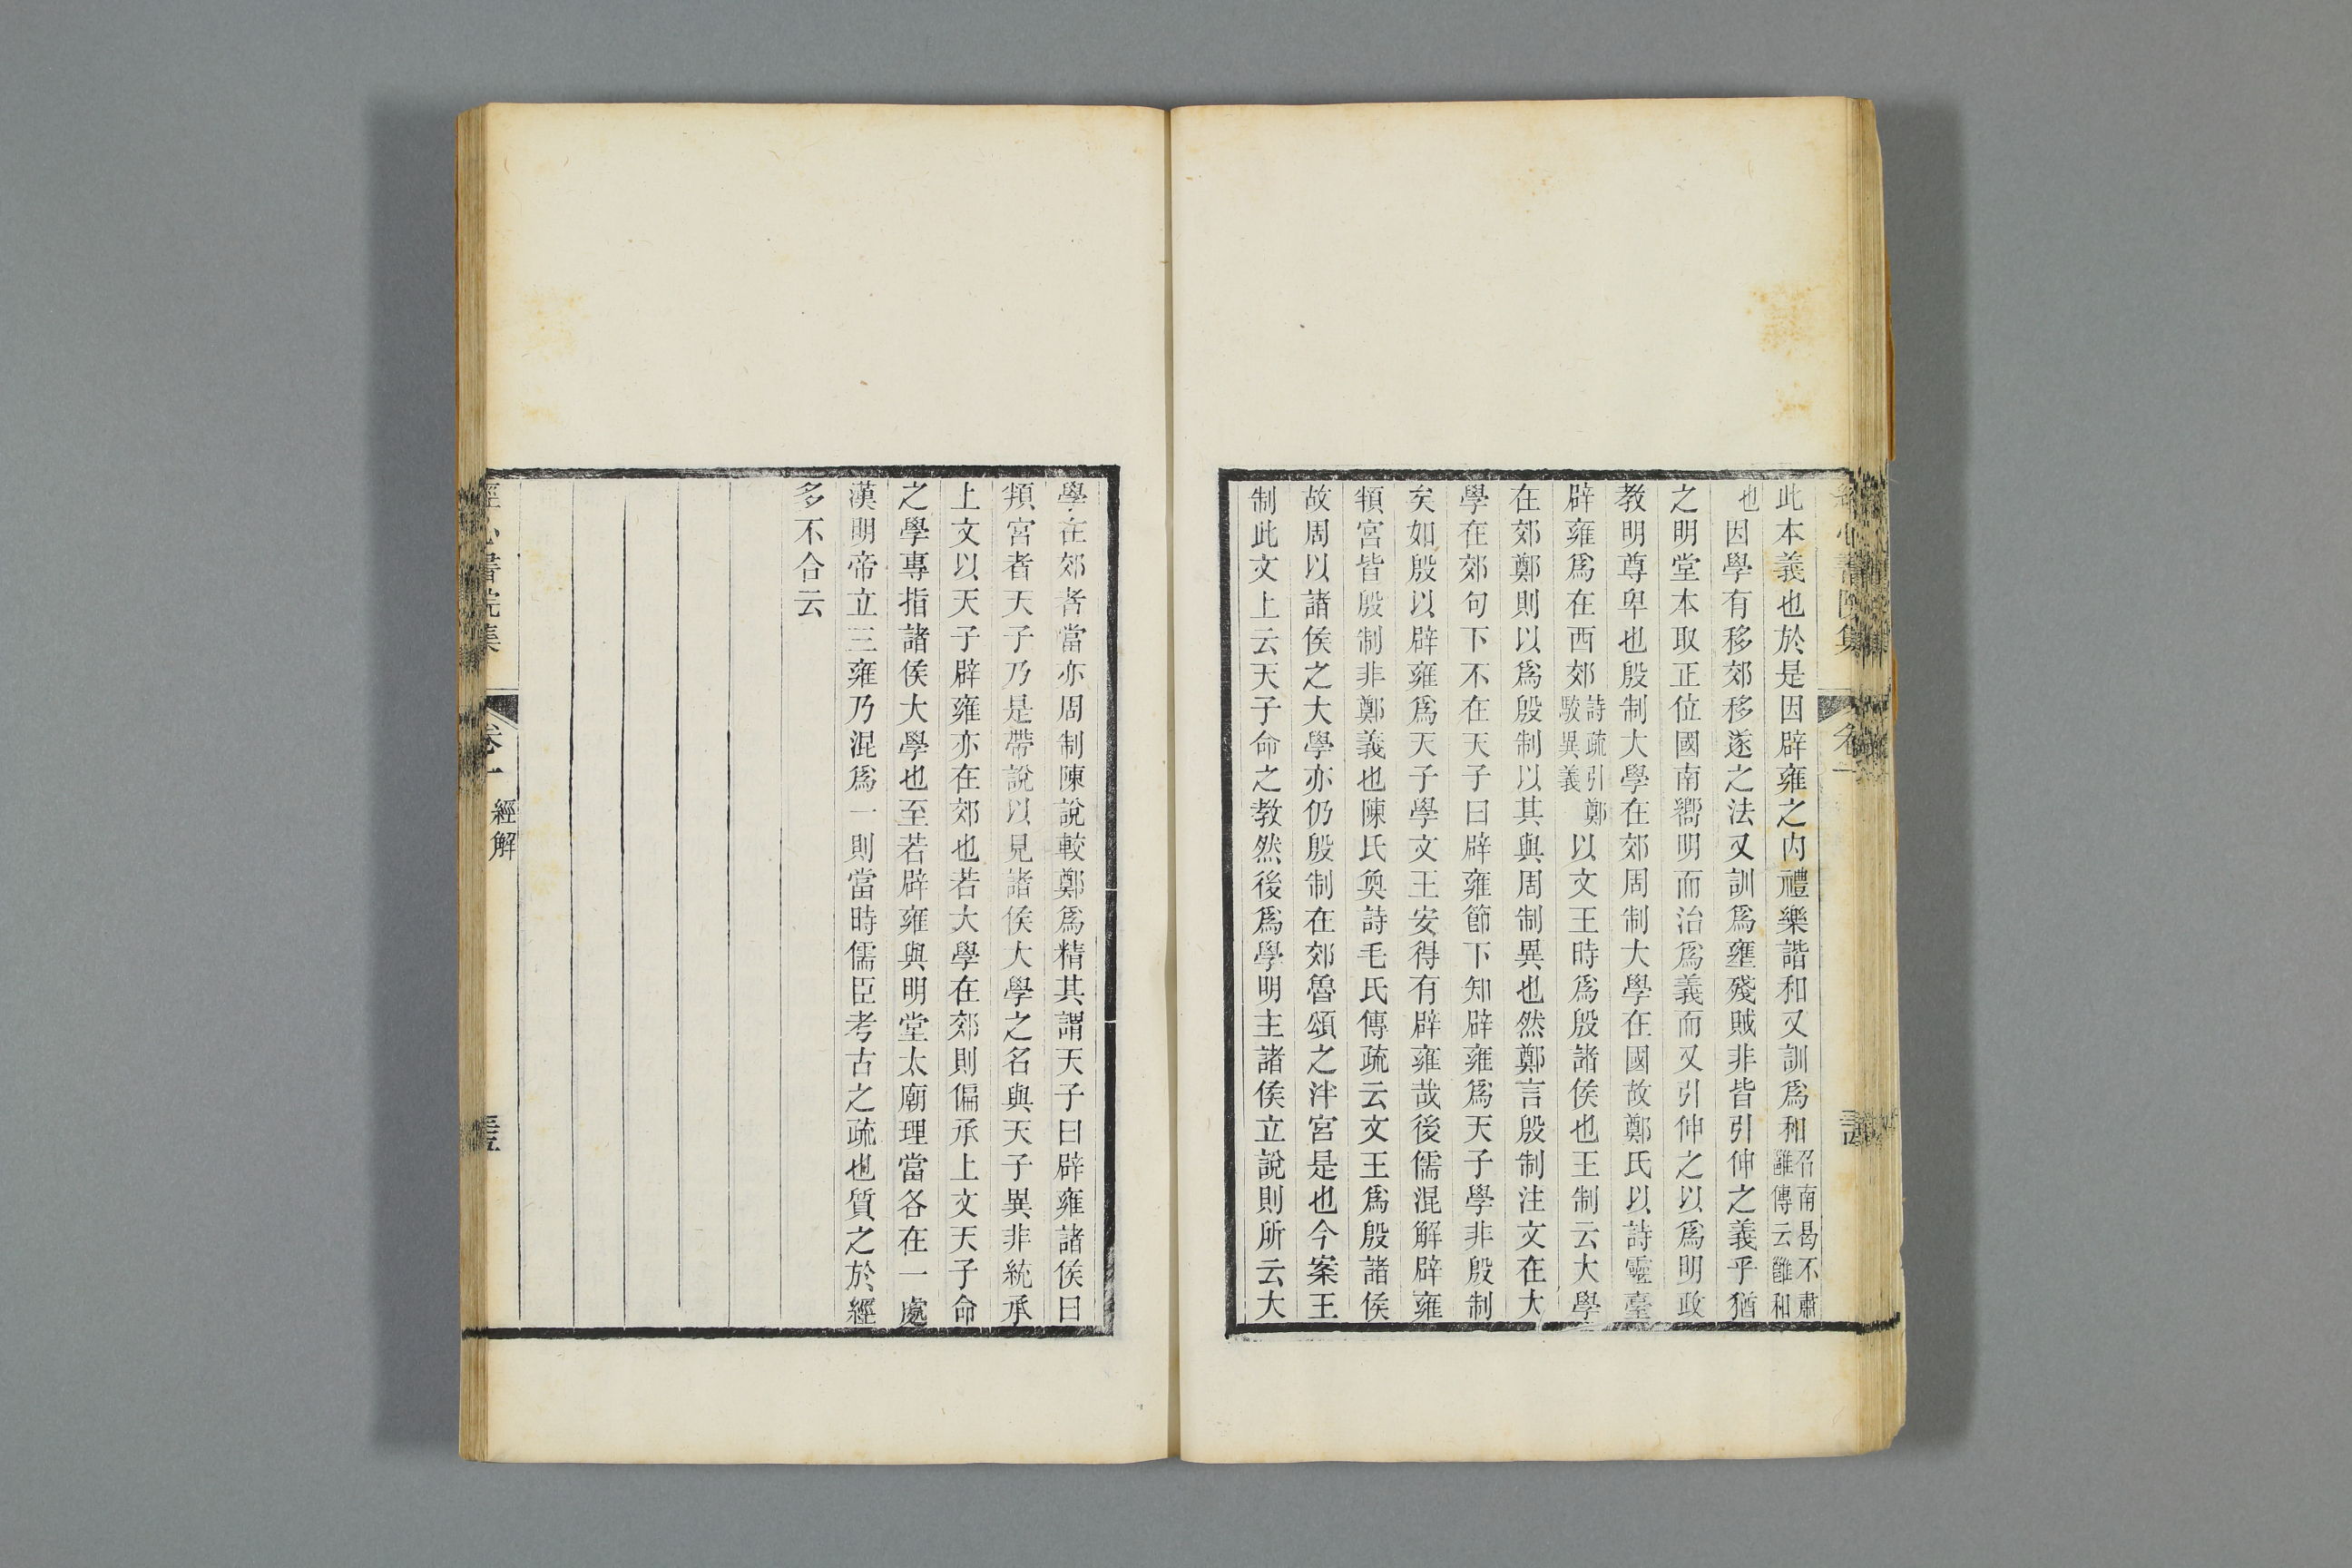 此本義也於是因辟雍之內禮樂諧和又訓爲和召南曷不肅雝傳云雝和
也因學有移郊移遂之法又訓爲壅殘賊非皆引伸之義乎猶
之明堂本取正位國南嚮明而治爲義而又引伸之以爲明政
教明尊卑也殷制大學在郊周制大學在國故鄭氏以詩靈臺
辟雍爲在西郊詩疏引鄭駮異義以文王時爲殷諸侯也王制云大學
在郊鄭則以爲殷制以其與周制異也然鄭言殷制注文在大
學在郊句下不在天子曰辟雍節下知辟雍爲天子學非殷制
矣如殷以辟雍爲天子學文王安得有辟雍哉後儒混解辟雍
頖宮皆殷制非鄭義也陳氏奐詩毛氏傳疏云文王爲殷諸侯
故周以諸侯之大學亦仍殷制在郊魯頌之泮宮是也今案王
制此文上云天子命之教然後爲學明主諸侯立說則所云大
學在郊者當亦周制陳說較鄭爲精其謂天子曰辟雍諸侯曰
頖宮者天子乃是帶說以見諸侯大學之名與天子異非統承
上文以天子辟雍亦在郊也若大學在郊則偏承上文天子命
之學專指諸侯大學也至若辟雍與明堂太廟理當各在一處
漢明帝立三雍乃混爲一則當時儒臣考古之疏也質之於經
多不合云
經心書院集
卷一
經解